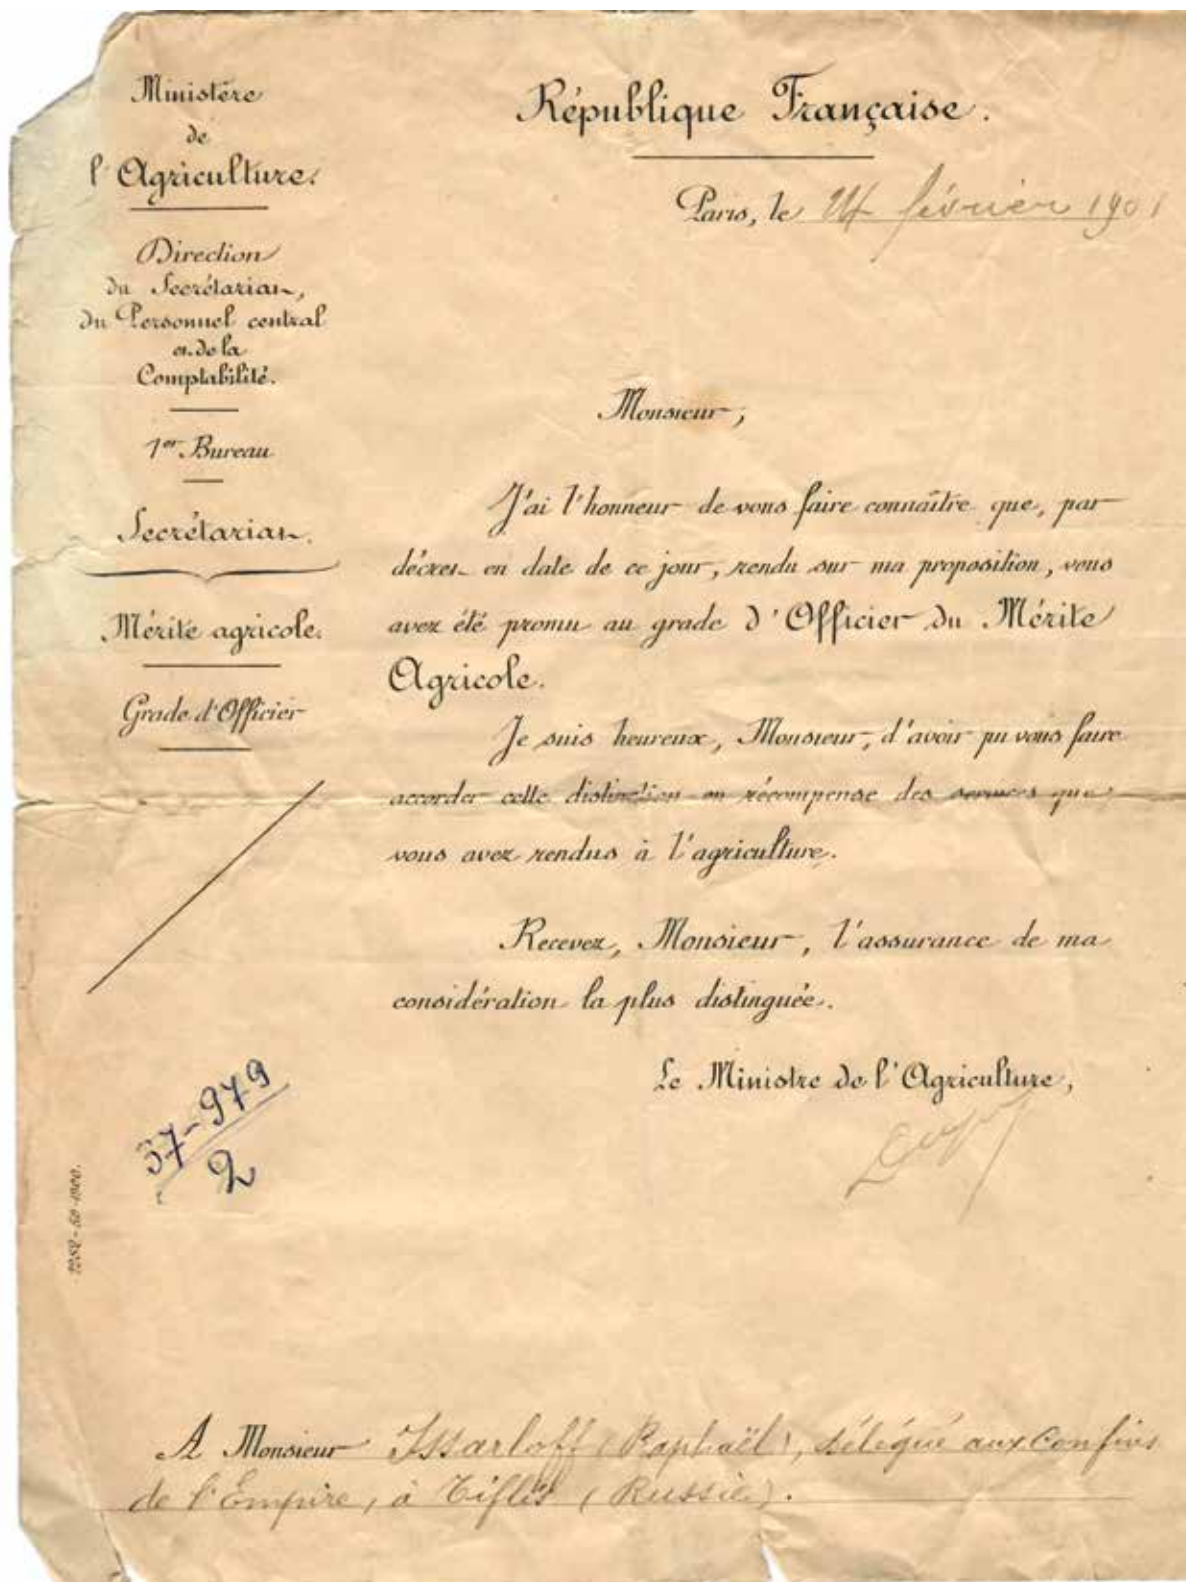 Ministère
de
l'Agriculture.
Direction
du Secrétariat,
du Personnel central
et de la
Comptabilité.
1er Bureau
Secrétariat.
Mérite agricole.
Grade d'Officier
République Française.
Paris, le 24 février 1901
Monsieur,
J'ai l'honneur de vous faire connaître que, par
décret en date de ce jour, rendu sur ma proposition, vous
avez été promu au grade d'Officier du Mérite
Agricole.
Je suis heureux, Monsieur, d'avoir pu vous faire
accorder cette distinction en récompense des services que
vous avez rendus à l'agriculture.
Recevez, Monsieur, l'assurance de ma
considération la plus distinguée.
Le Ministre de l'Agriculture,
37-979
2
A Monsieur Issarloff (Raphaël), délégué aux Confins
de l'Empire, à Tiflis (Russie).